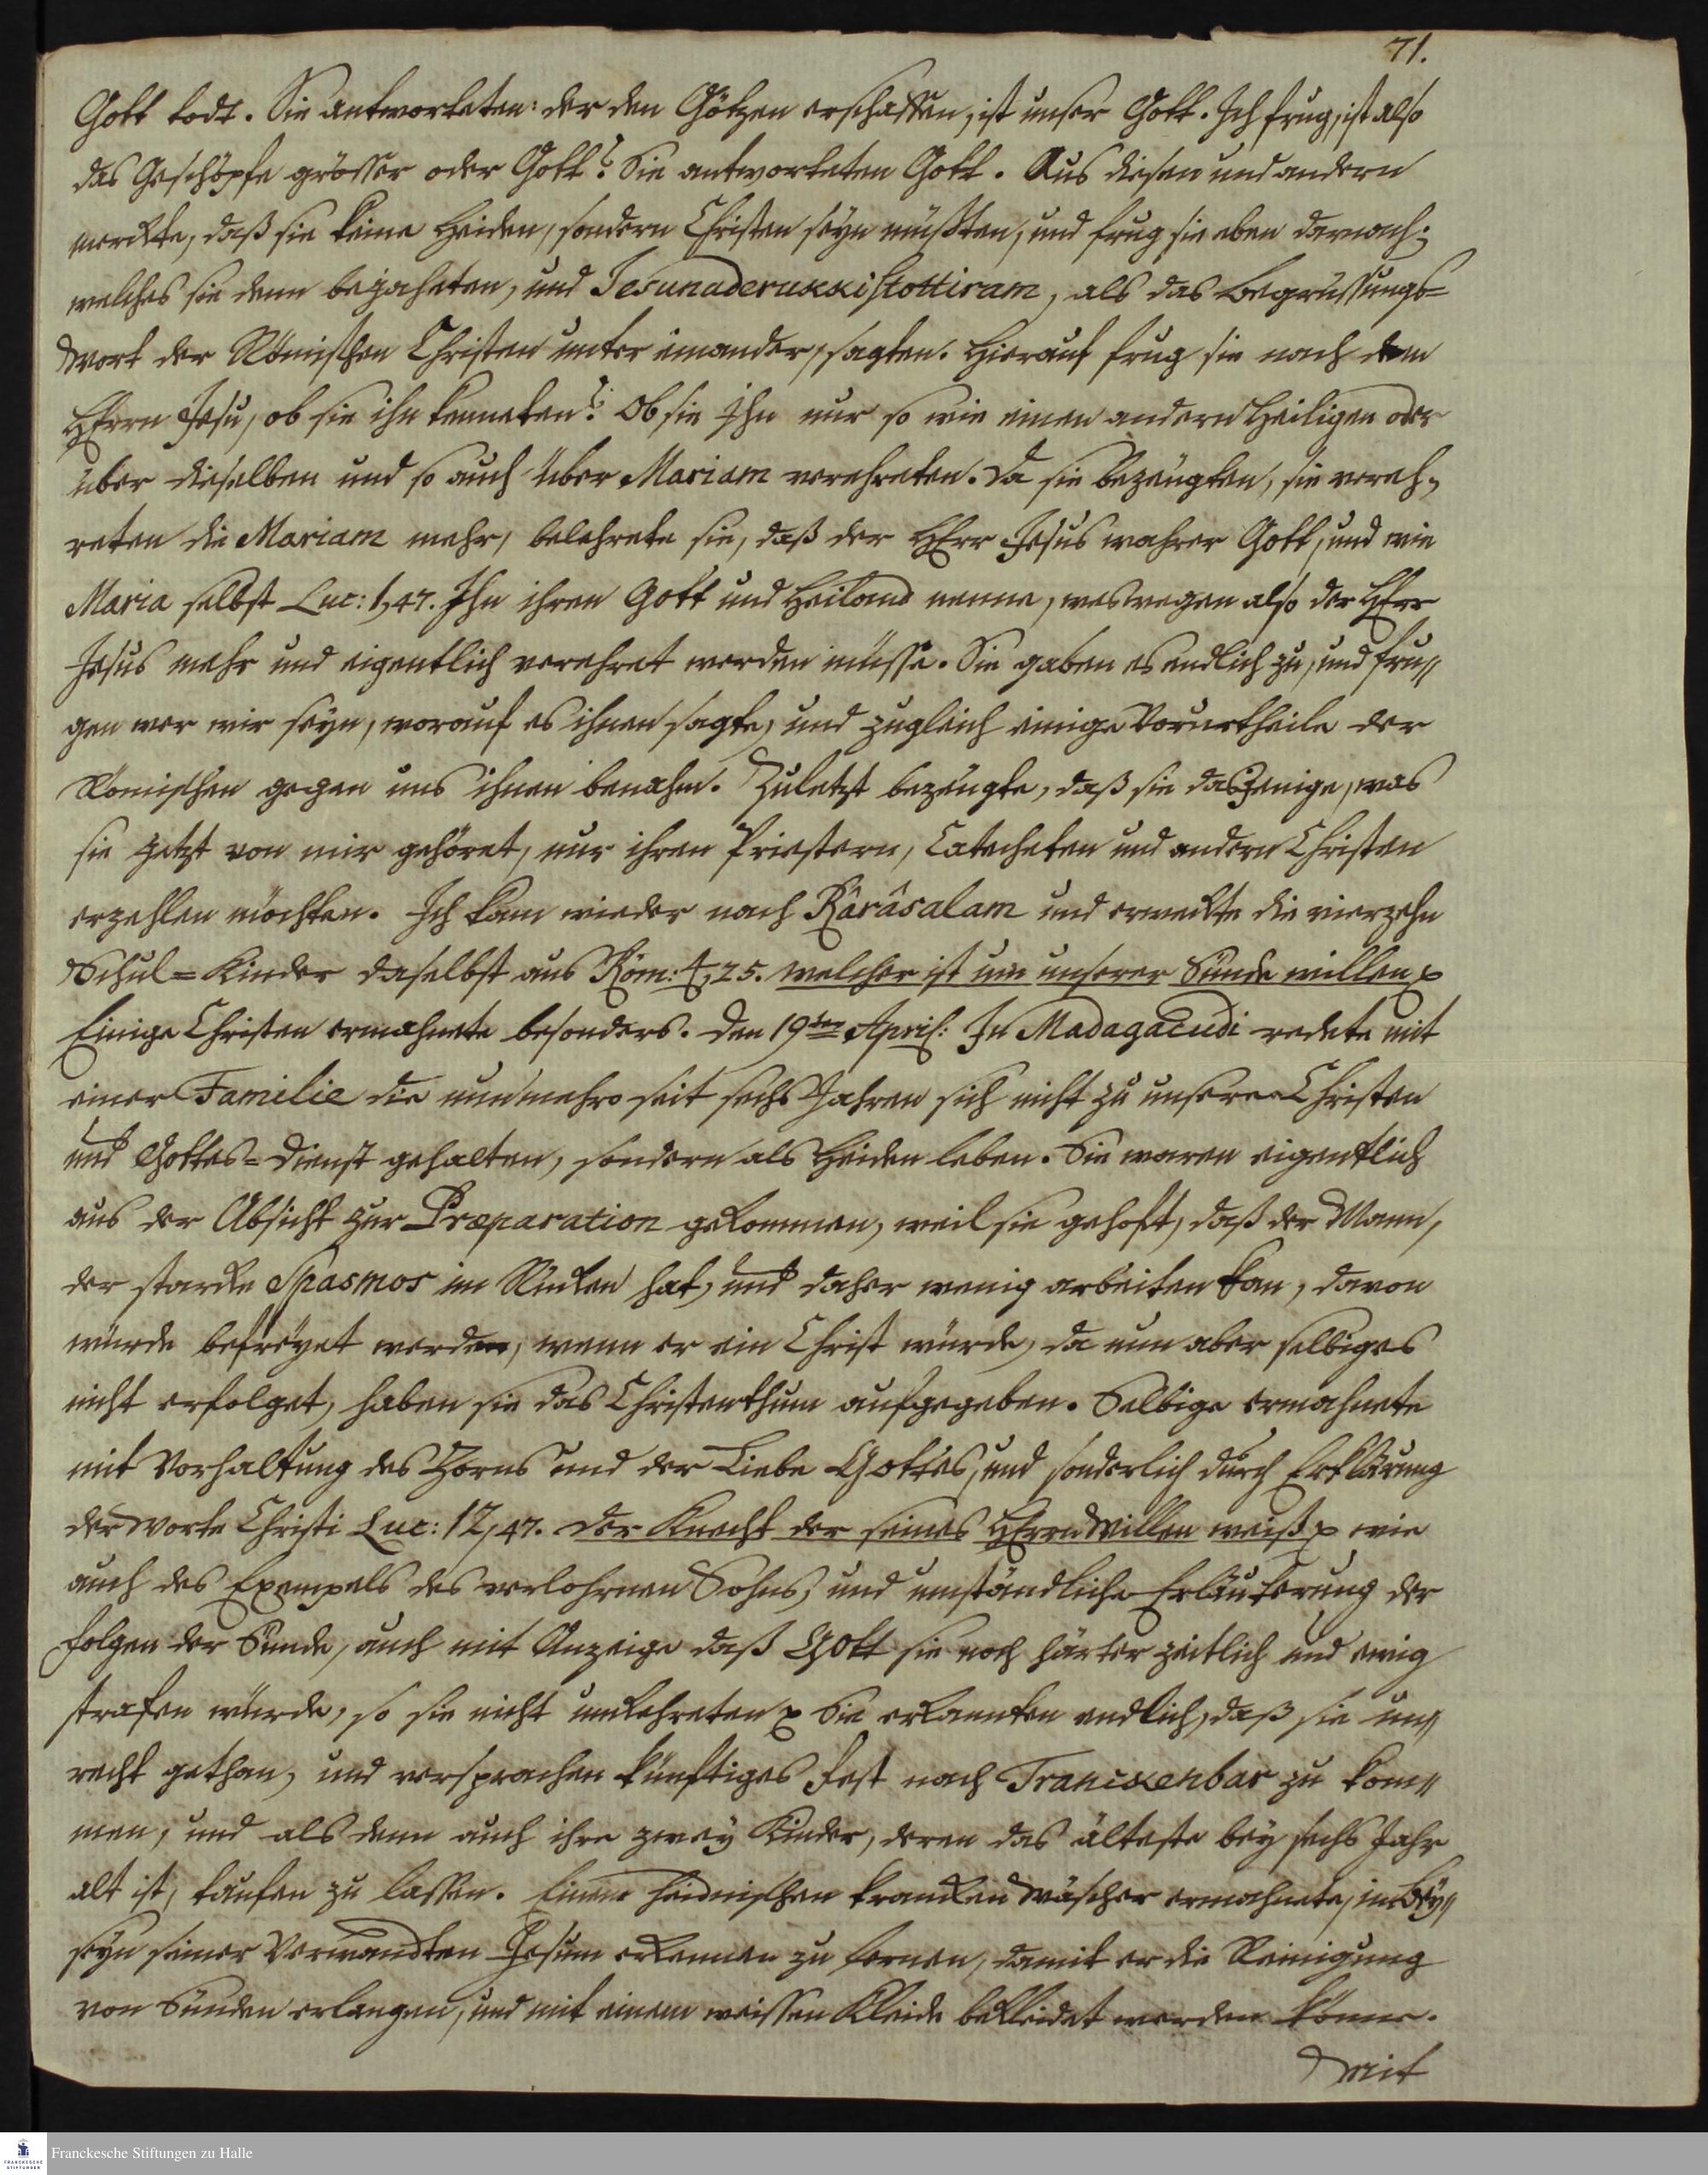 71.
Gott todt. Sie antworteten: der den Götzen erschaffen, ist unser Gott. Ich frug, ist also
das Geschöpfe grösser oder Gott? Sie antworteten Gott. Aus diesen und andern
merckte, daß sie keine Heiden, sondern Christen seyn müsten, und frug sie eben darnach;
welches sie denn bejaheten, und Jesunaderukkistottiram, als das Begrüssungs=
Wort der Römischen Christen unter einander, sagten. Hierauf frug sie nach dem
HErrn Jesu, ob sie ihn kenneten? Ob sie Ihn nur so wie einen andern Heiligen oder
über dieselben und so auch über Mariam verehreten. Da sie bezeugten, sie vereh=
reten die Mariam mehr, belehrete sie, daß der HErr Jesus wahrer Gott, und wie
Maria selbst Luc: 1,47. Ihn ihren Gott und Heiland nenne, weswegen also der HErr
Jesus mehr und eigentlich verehret werden müsse. Sie gaben es endlich zu, und fru=
gen wer wir seyn, worauf es ihnen sagte, und zugleich einige Vorurtheile der
Römischen gegen uns ihnen benahm. Zuletzt bezeugte, daß sie dasjenige, was
sie jetzt von mir gehöret, nur ihren Priestern, Catecheten und andern Christen
erzehlen möchten. Ich kam wieder nach Kârâsalam und erweckte die vierzehn
Schul=Kinder daselbst aus Röm: 4,25. welcher ist um unserer Sünde willen p
Einige Christen ermahnete besonders. Den 19ten April: In Madagacudi redete mit
einer Familie die nunmehro seit sechs Jahren sich nicht zu unseren Christen
und Gottes=Dienst gehalten, sondern als Heiden leben. Sie waren eigentlich
aus der Absicht zur Præparation gekommen, weil sie gehoft, daß der Mann,
der starcke Spasmos im Rücken hat, und daher wenig arbeiten kan, davon
würde befreyet werden, wenn er ein Christ würde, da nun aber selbiges
nicht erfolget, haben sie das Christenthum aufgegeben. Selbige ermahnete
mit Vorhaltung des Zorns und der Liebe Gottes, und sonderlich durch Erklärung
der Worte Christi Luc: 12,47. der Knecht der seines HErrn Willen weiß p wie
auch des Exempels des verlohrnen Sohns, und umständliche Erläuterung der
Folgen der Sünde, auch mit Anzeige daß Gott sie noch härter zeitlich und ewig
strafen würde, so sie nicht umkehreten p Sie erkannten endlich, daß sie un=
recht gethan, und versprachen künftiges Fest nach Tranckenbar zu kom=
men, und als denn auch ihre zwey Kinder, deren das älteste bey sechs Jahr
alt ist, taufen zu lassen. Einen heidnischen krancken Wäscher ermahnete, in Bey=
seyn seiner Verwandten Jesum erkennen zu lernen, damit er die Reinigung
von Sünden erlangen, und mit einem weissen Kleide bekleidet werden könne.
Mit
Franckesche Stiftungen zu Halle